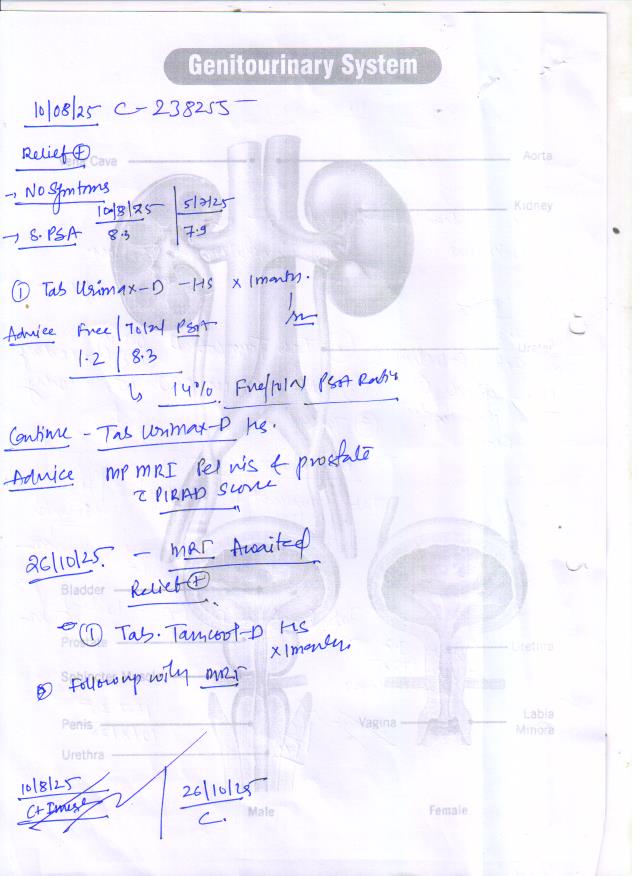 Genitourinary System
10/08/25 C-238255
Relief ⊕
Vena Cava
Aorta
→ No Symtms
Kidney
10/8/25 | 5/7/25
→ S.PSA 8.3 | 7.9
① Tab Urimax-D -HS x 1 month.
Advice Free / Total PSA
1.2 | 8.3
Ureter
↳ 14%. Free/total PSA Ratio
Continue - Tab Urimax-D Hs.
Advice MP MRI Pelvis & prostate
c̄ PIRAD Score
26/10/25. - MRI Awaited
Bladder
Relief ⊕
① Tab. Tamcool-D HS
x 1 month.
Prostate
Urethra
Sphincter Muscle
② Followup with MRI
Penis
Vagina
Labia
Minora
Urethra
10/8/25 | 26/10/25
C.
Male
Female